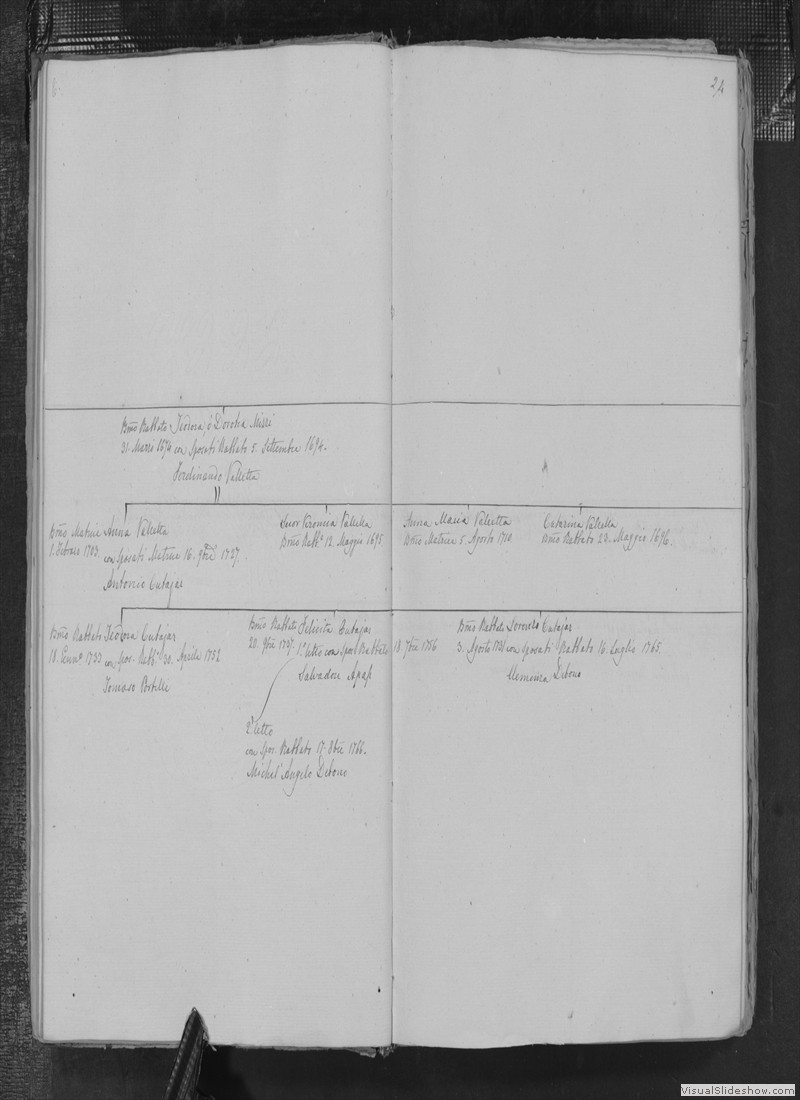 24
Bmo Rabbato Teodora ò Dorotea Mizzi
31. Marzo 1674 con Sposati Rabbato 5. Settembre 1694.
Ferdinando Valletta
Bmo Matrice Anna Valletta
1. Febraro 1703 con Sposati Matrice 16. 9bre 1727.
Antonio Cutajar
Suor Veronica Valletta
Bmo Rabbo 12. Maggio 1695
Anna Maria Valletta
Bmo Matrice 5. Agosto 1710.
Catarina Valletta
Bmo Rabbato 23. Maggio 1696.
Bmo Rabbato Teodora Cutajar
18. Genno 1733 con Spos. Rabbo 30. Aprile 1752
Tomaso Portelli
Bmo Rabbato Felicita Cutajar
20. 9bre 1737. 1o letto con Spos. Rabbato 18. 7bre 1756
Salvadore Apap
2o letto
con Spos. Rabbato 17. Xbre 1766.
Michel' Angelo Debono
Bmo Rabbato Lorenzo Cutajar
3. Agosto con Sposati Rabbato 14. Luglio 1765.
Debono
VisualSlideshow.com